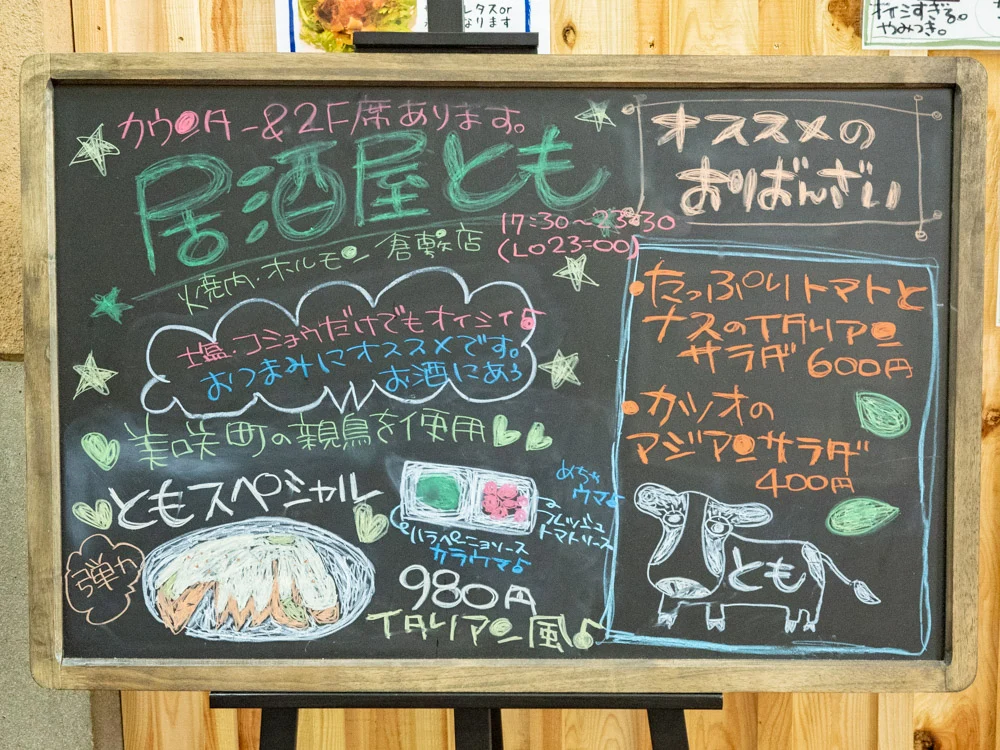 レタスor
なります
オイシすぎる。
やみつき。
カウンター&2F席あります。
居酒屋とも
17:30～23:30
(LO23:00)
焼肉・ホルモン 倉敷店
塩・コショウだけでもオイシイ♪
おつまみにオススメです。
お酒にあう
美咲町の親鳥を使用
ともスペシャル
弾力
めちゃ
ウマ♪
フレッシュ
トマトソース
ハラペーニョソース
カラウマ♪
980円
イタリアン風♪
オススメの
おばんざい
・たっぷりトマトと
ナスのイタリアン
サラダ 600円
・カツオの
アジアンサラダ
400円
とも